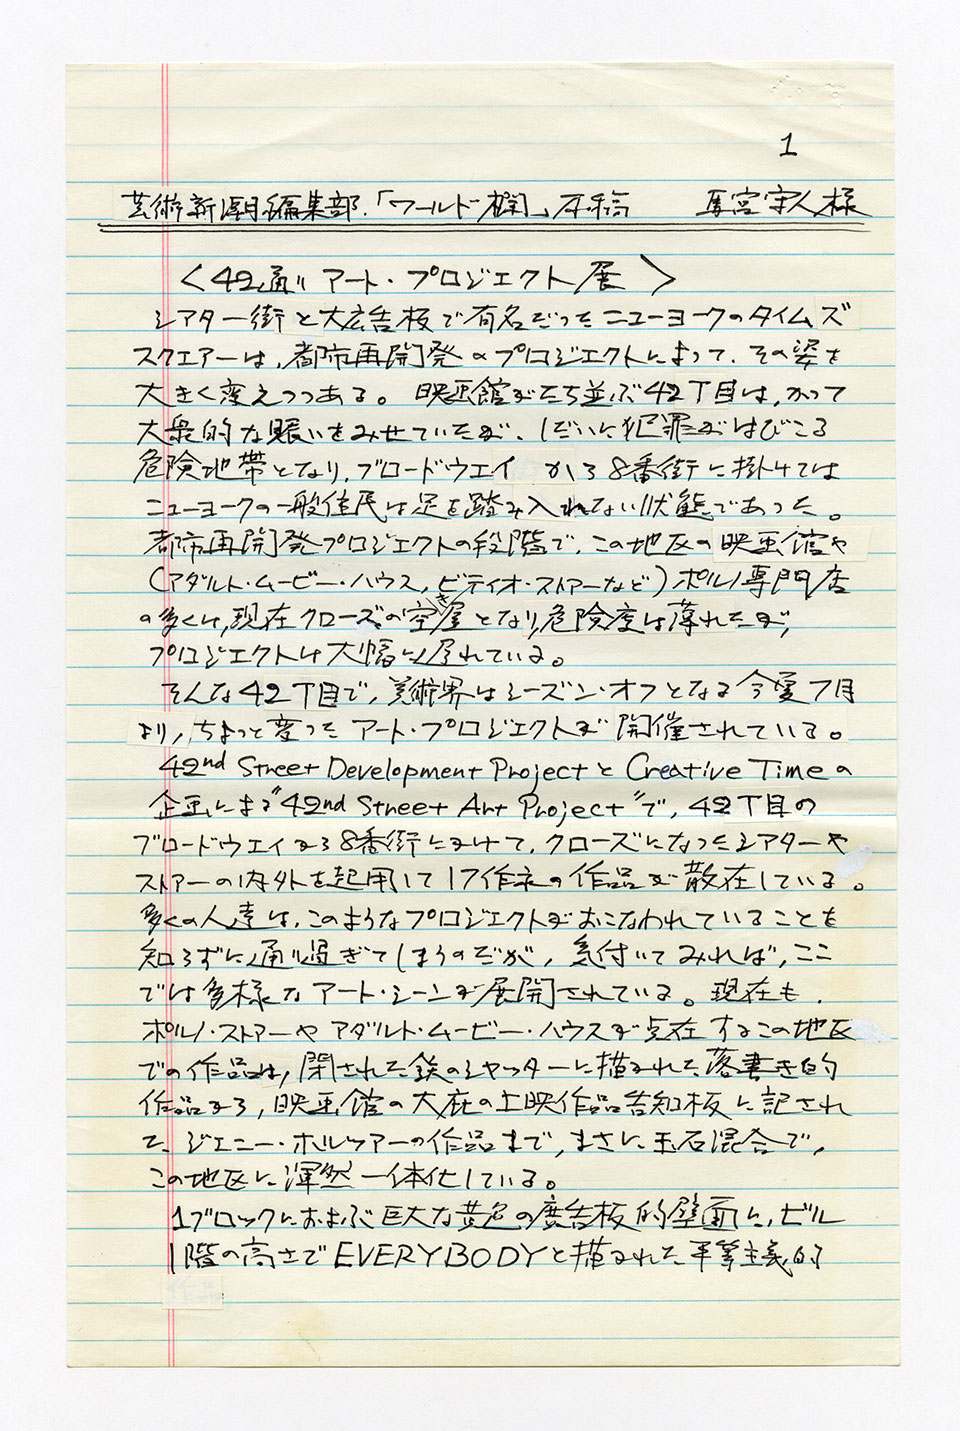 1
芸術新潮編集部.「ワールド欄」原稿 馬宮守人様
〈42通り アート・プロジェクト展〉
シアター街と大広告板で有名だったニューヨークのタイムズ
スクエアーは,都市再開発のプロジェクトによって、その姿を
大きく変えつつある。映画館がたち並ぶ42丁目は、かつて
大衆的な賑いをみせていたが、しだいに犯罪がはびこる
危険地帯となり,ブロードウエイから8番街に掛けては
ニューヨークの一般住民は足を踏み入れない状態であった。
都市再開発プロジェクトの段階で、この地区の映画館や
(アダルト・ムービー・ハウス,ビディオ・ストアーなど)ポルノ専門店
の多くは,現在クローズの空き屋となり,危険度は薄れたが,
プロジェクトは大幅に遅れている。
そんな42丁目で,美術界はシーズン・オフとなる今夏7月
より,ちょっと変ったアート・プロジェクトが開催されている。
42nd Street Development ProjectとCreative Timeの
企画による"42nd Street Art Project"で,42丁目の
ブロードウエイから8番街にかけて,クローズになったシアターや
ストアーの内外を起用して17作家の作品が散在している。
多くの人達は,このようなプロジェクトがおこなわれていることを
知らずに通り過ぎてしまうのだが,気付いてみれば,ここ
では多様なアート・シーンが展開されている。現在も,
ポルノ・ストアーやアダルト・ムービー・ハウスが点在するこの地区
での作品は,閉された鉄のシャッターに描かれた落書き的
作品から,映画館の大庇の上映作品告知板に記され
た、ジェニー・ホルツァーの作品まで,まさに玉石混合で,
この地区に渾然一体化している。
1ブロックにおよぶ巨大な黄色の広告板的壁面に,ビル
1階の高さでEVERYBODYと描かれた平等主義的
作品